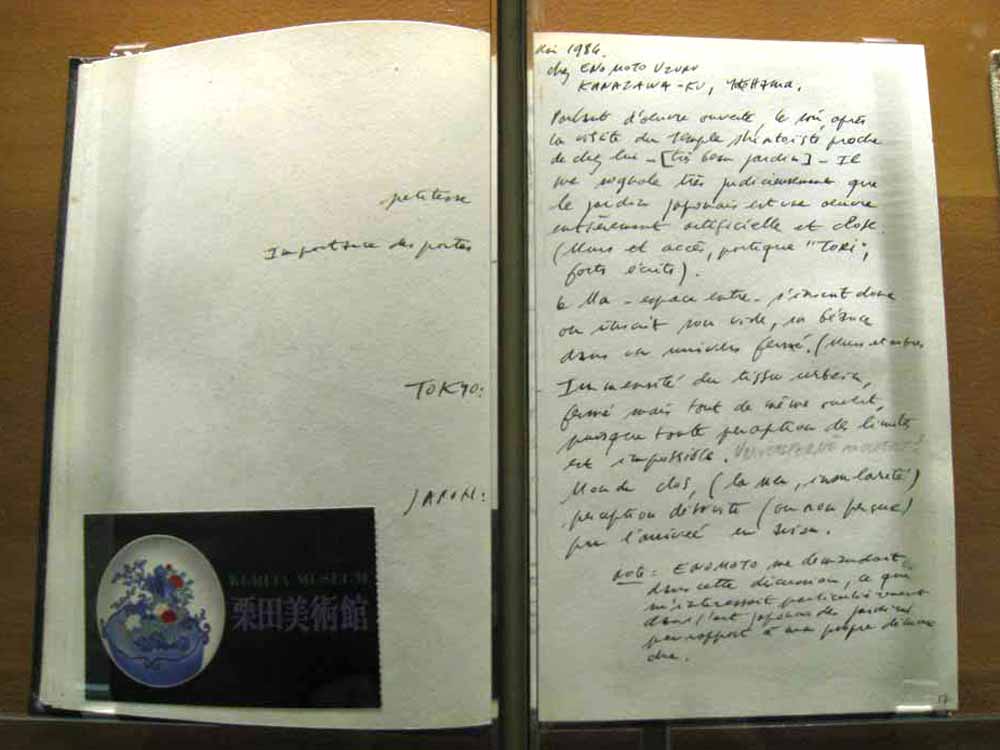 petitesse
Importance des portes
TOKYO:
JAPON:
KURITA MUSEUM
栗田美術館
1986.
chez ENOMOTO
KANAZAWA-KU, YOKOHAMA.
Parlant d'oeuvre ouverte, le soir, après
la visite du temple shintoïste proche
de chez lui - [très beau jardin] - Il
me signale très judicieusement que
le jardin japonais est une oeuvre
entièrement artificielle et close.
(Murs et accès, portique "TORI",
forts écrits).
le Ma - espace entre - s'inscrit donc
ou inscrit son vide, sa béance
dans un univers fermé. (Murs et
Immensité du tissu urbain,
fermé mais tout de même ouvert,
puisque toute perception de limites
est impossible.
Monde clos, (la mer, insularité)
perception (ou non perçue)
par l'arrivée en avion.
Note: ENOMOTO me demandait,
dans cette discussion, ce qui
m'intéressait particulièrement
dans l'art japonais des jardins
par rapport à ma propre démar
che.
17